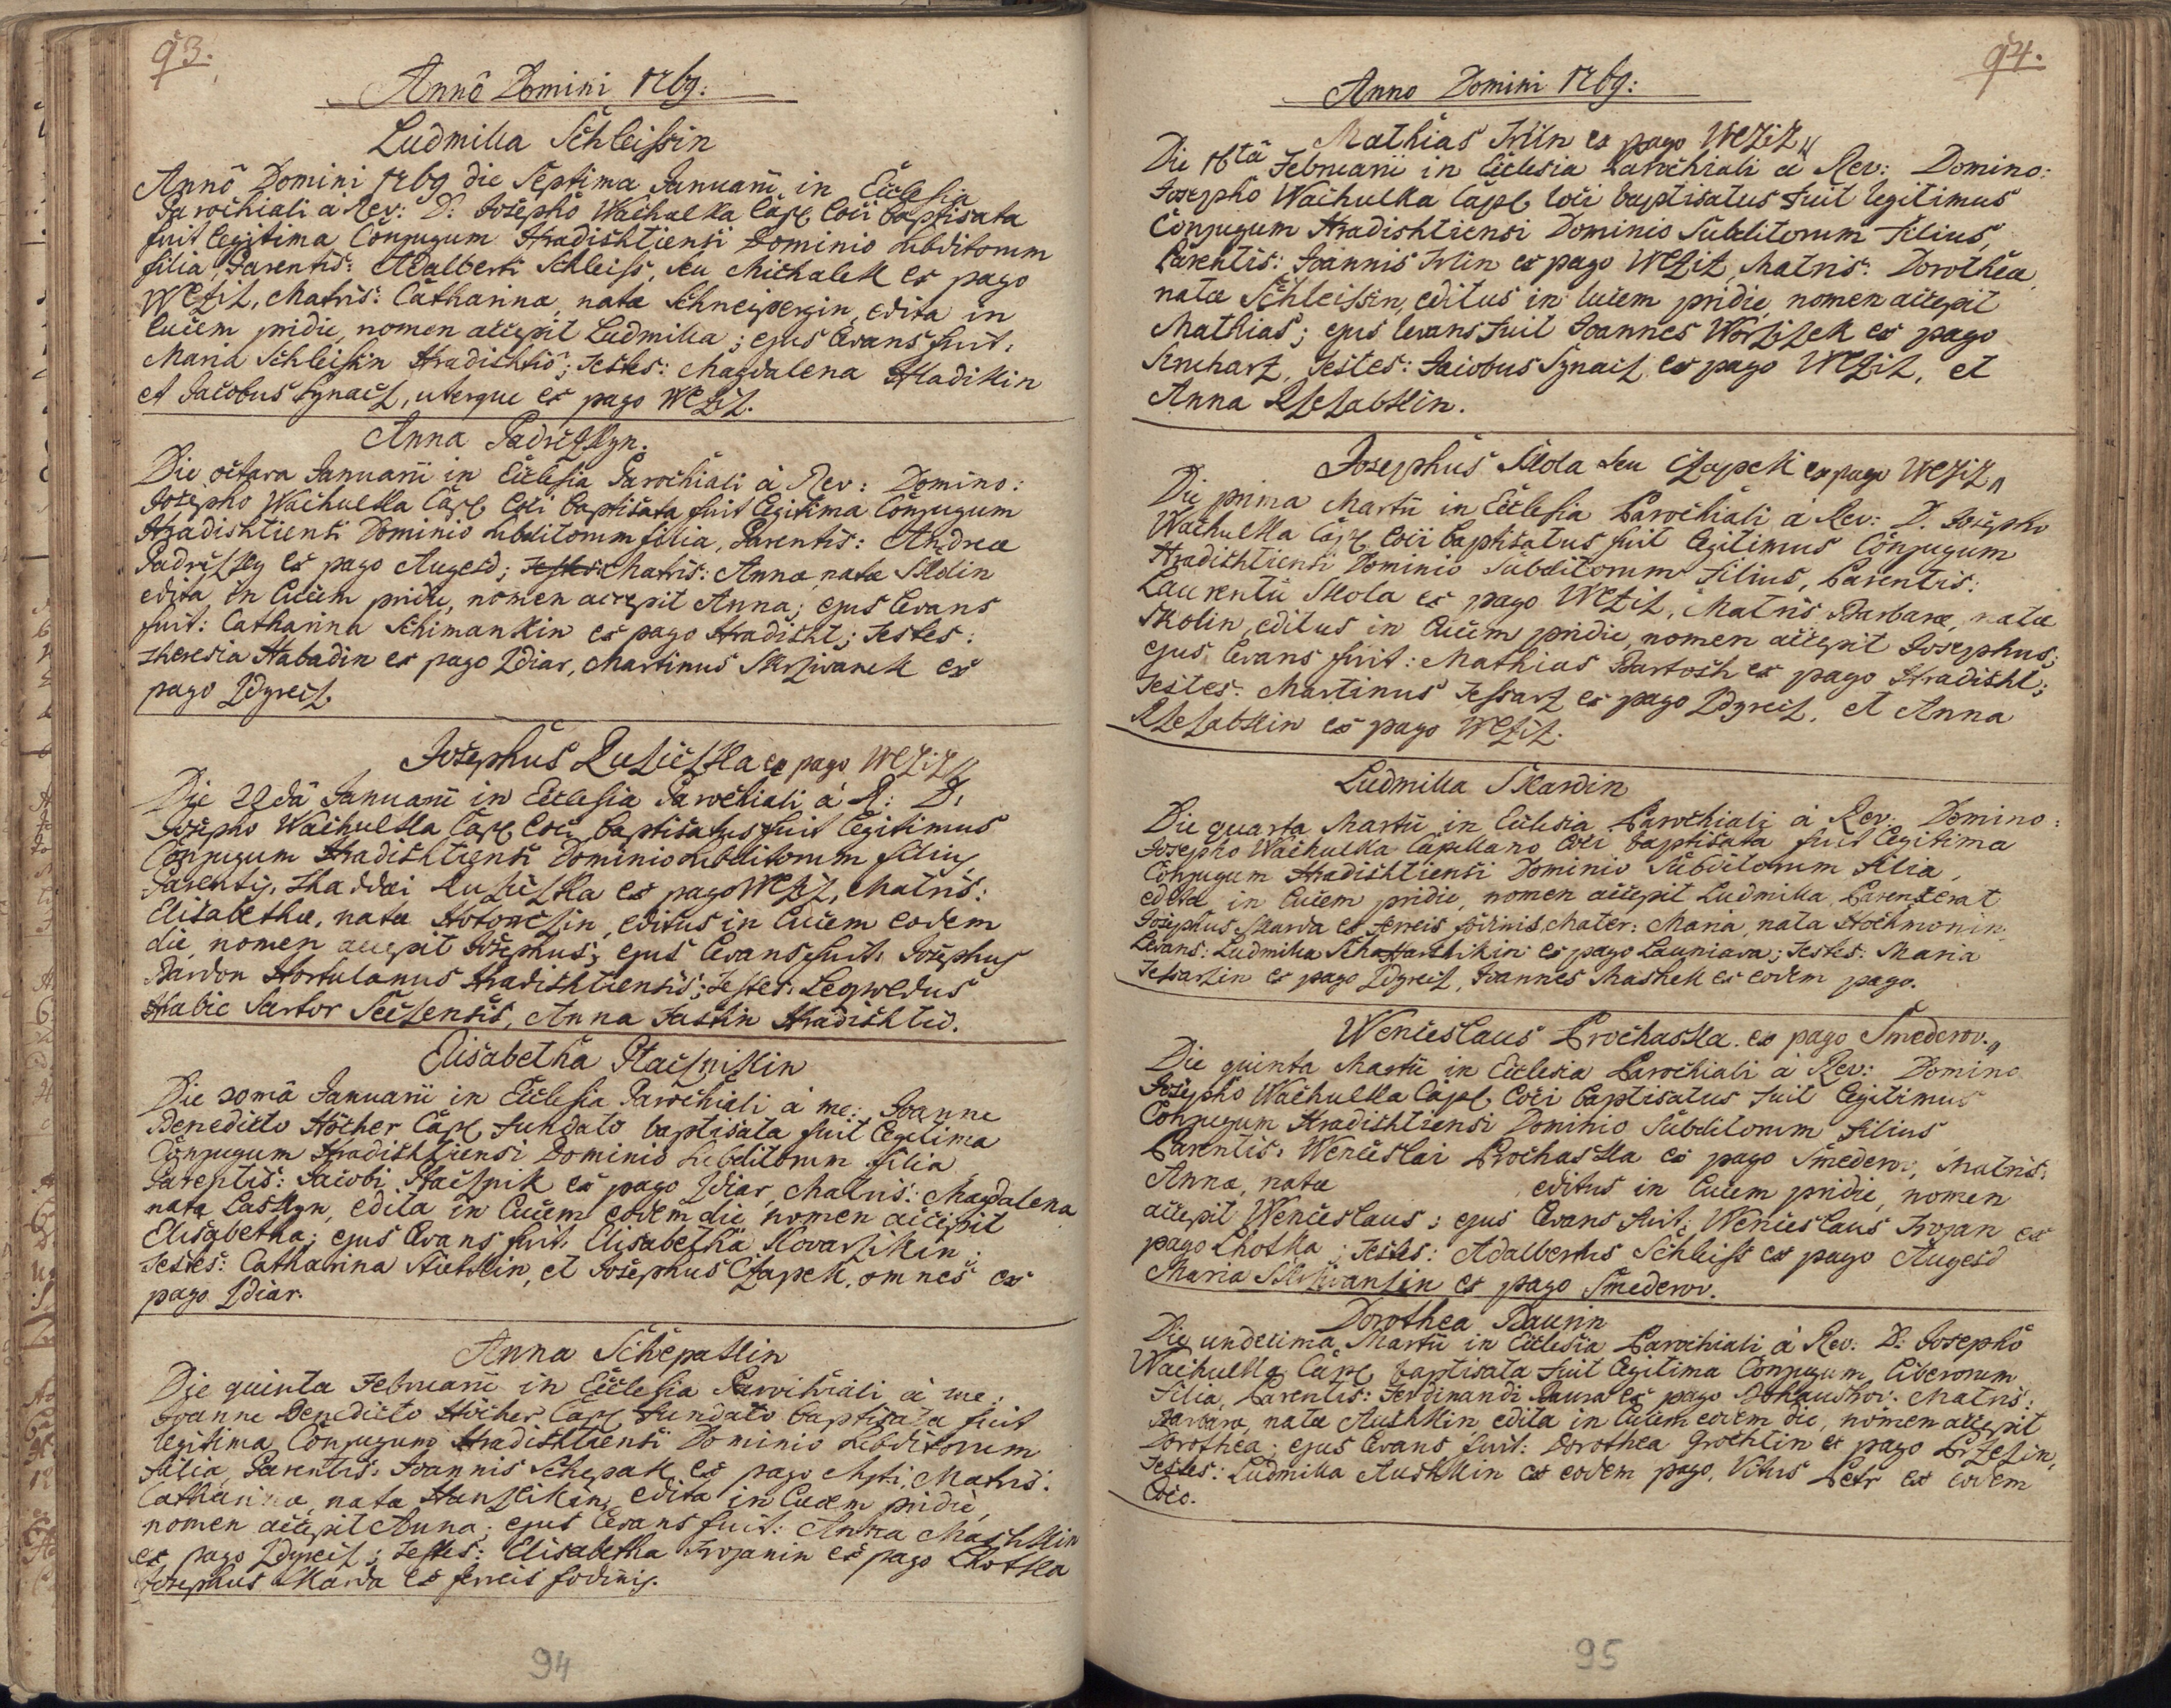 93.
Annô Domini 1769:
Ludmilla Schleissin
Annô Domini 1769 die Septima Januarii in Ecclesia
Parochiali à Rev: D: Josepho Wachulka Capl: loci baptisata
fuit legitima Conjugum Hradishtiensi Dominio subditorum
filia, Parentis: Adalberti Schleiss, seu Michalek ex pago
Weziz, Matris: Catharina, nata Schneipergin, edita in
lucem pridie, nomen accepit Ludmilla; ejus levans fuit:
Maria Schleissin Hradishtio; Testes: Magdalena Hladikin
et Jacobus Synacz, uterque ex pago Weziz.
Anna Padrczkyn.
Die octava Januarii in Ecclesia Parochiali à Rev: Domino:
Josepho Wachulka Capl: loci baptisata fuit legitima Conjugum
Hradishtiensi Dominio subditorum filia, Parentis: Andrea
Padrczky ex pago Augezd; Testes: Matris: Anna, nata Skolin
edita in lucem pridie, nomen accepit Anna; ejus levans
fuit: Catharina Schimankin ex pago Hradisht; Testes:
Theresia Habadin ex pago Zdiar, Martinus Skrziwanek ex
pago Zdyrecz.
Josephus Ruziczka ex pago Weziz
Die 22dâ Januarii in Ecclesia Parochiali à R: D:
Josepho Wachulka Capl: loci baptisatus fuit legitimus
Conjugum Hradishtiensi Dominio subditorum filius
Parentis, Thaddæi Ruziczka ex pago Weziz, Matris:
Elisabethæ, nata Hotowczin, editus in lucem eodem
die, nomen accepit Josephus; ejus levans fuit: Josephus
Bardon Hortulanus Hradishtiensis; Testes: Leopoldus
Habic Sartor Seczensis, Anna Fastin Hradishtio.
Elisabetha Ptacznikin
Die 20mâ Januarii in Ecclesia Parochiali à me: Joanne
Benedicto Höcher Capl: fundato baptisata fuit legitima
Conjugum Hradishtiensi Dominio subditorum filia
Parentis: Jacobi Ptacznik ex pago Zdiar, Matris: Magdalena
nata Laskyn, edita in lucem eodem die, nomen accepit
Elisabetha; ejus levans fuit: Elisabetha Kovarzikin;
Testes: Catharina, et Josephus Czapek, omnes ex
pago Zdiar.
Anna Schepakin
Die quinta Februarii in Ecclesia Parochiali à me:
Joanne Benedicto Höcher Capl: fundato baptisata fuit
legitima Conjugum Hradishtiensi Dominio subditorum
filia, Parentis: Joannis Schepak ex pago, Matris:
Catharina, nata Hanzlikin, edita in lucem pridie,
nomen accepit Anna; ejus levans fuit: Anna Maschkin
ex pago Zdyrecz; Testes: Elisabetha Trojanin ex pago Lhotka
Josephus Skarda ex ferreis fodinis.
94
94.
Anno Domini 1769:
Mathias Irlin ex pago Weziz
Die 16tâ Februarii in Ecclesia Parochiali à Rev: Domino:
Josepho Wachulka Capl: loci baptisatus fuit legitimus
Conjugum Hradishtiensi Dominio Subditorum filius,
Parentis: Joannis Irlin ex pago Weziz, Matris: Dorothea,
natæ Schleissin, editus in lucem pridie, nomen accepit
Mathias; ejus levans fuit Joannes Worziszek ex pago
Smeharz, Testes: Jacobus Synacz ex pago Weziz, et
Anna Rzezabkin.
Josephus Skola seu Czapek ex pago Weziz
Die prima Martii in Ecclesia Parochiali à Rev: D: Josepho
Wachulka Capl: loci baptisatus fuit legitimus Conjugum
Hradishtiensi Dominio Subditorum filius, Parentis:
Laurentii Skola ex pago Weziz, Matris Barbaræ, natæ
Skolin, editus in lucem pridie, nomen accepit Josephus;
ejus levans fuit: Mathias Bartosh ex pago Hradisht;
Testes: Martinus Tessarz ex pago Zdyrecz, et Anna
Rzezabkin ex pago Weziz.
Ludmilla Skardin
Die quarta Martii in Ecclesia Parochiali à Rev: Domino:
Josepho Wachulka Capellano loci baptisata fuit legitima
Conjugum Hradishtiensi Dominio Subditorum filia,
edita in lucem pridie, nomen accepit Ludmilla, Parens erat
Josephus Skarda ex ferreis fodinis, Mater: Maria, nata Hochmonin.
Levans: Ludmilla ex pago Launiava; Testes: Maria
Tessarzin ex pago Zdyrecz, Joannes Mashek ex eodem pago.
Wenceslaus Prochaska ex pago Smederov.
Die quinta Martii in Ecclesia Parochiali à Rev: Domino
Josepho Wachulka Capl: loci baptisatus fuit legitimus
Conjugum Hradishtiensi Dominio Subditorum filius
Parentis: Wenceslai Prochaska ex pago Smederov, Matris:
Anna, nata , editus in lucem pridie, nomen
accepit Wenceslaus; ejus levans fuit: Wenceslaus Trojan ex
pago Lhotka; Testes: Adalbertus Schleiss ex pago Augezd
Maria Skrziwanlin ex pago Smederov.
Dorothea Baurin
Die undecima Martii in Ecclesia Parochiali à Rev: D: Josepho
Wachulka Capl: baptisata fuit legitima Conjugum liberorum
filia, Parentis: Ferdinandi Baura ex pago, Matris:
Barbara, nata Aushkin edita in lucem eodem die, nomen accepit
Dorothea; ejus levans fuit: Dorothea Grochtin ex pago Przezin,
Testes: Ludmilla Aushkin ex eodem pago, Vitus Petr ex eodem
loco.
95